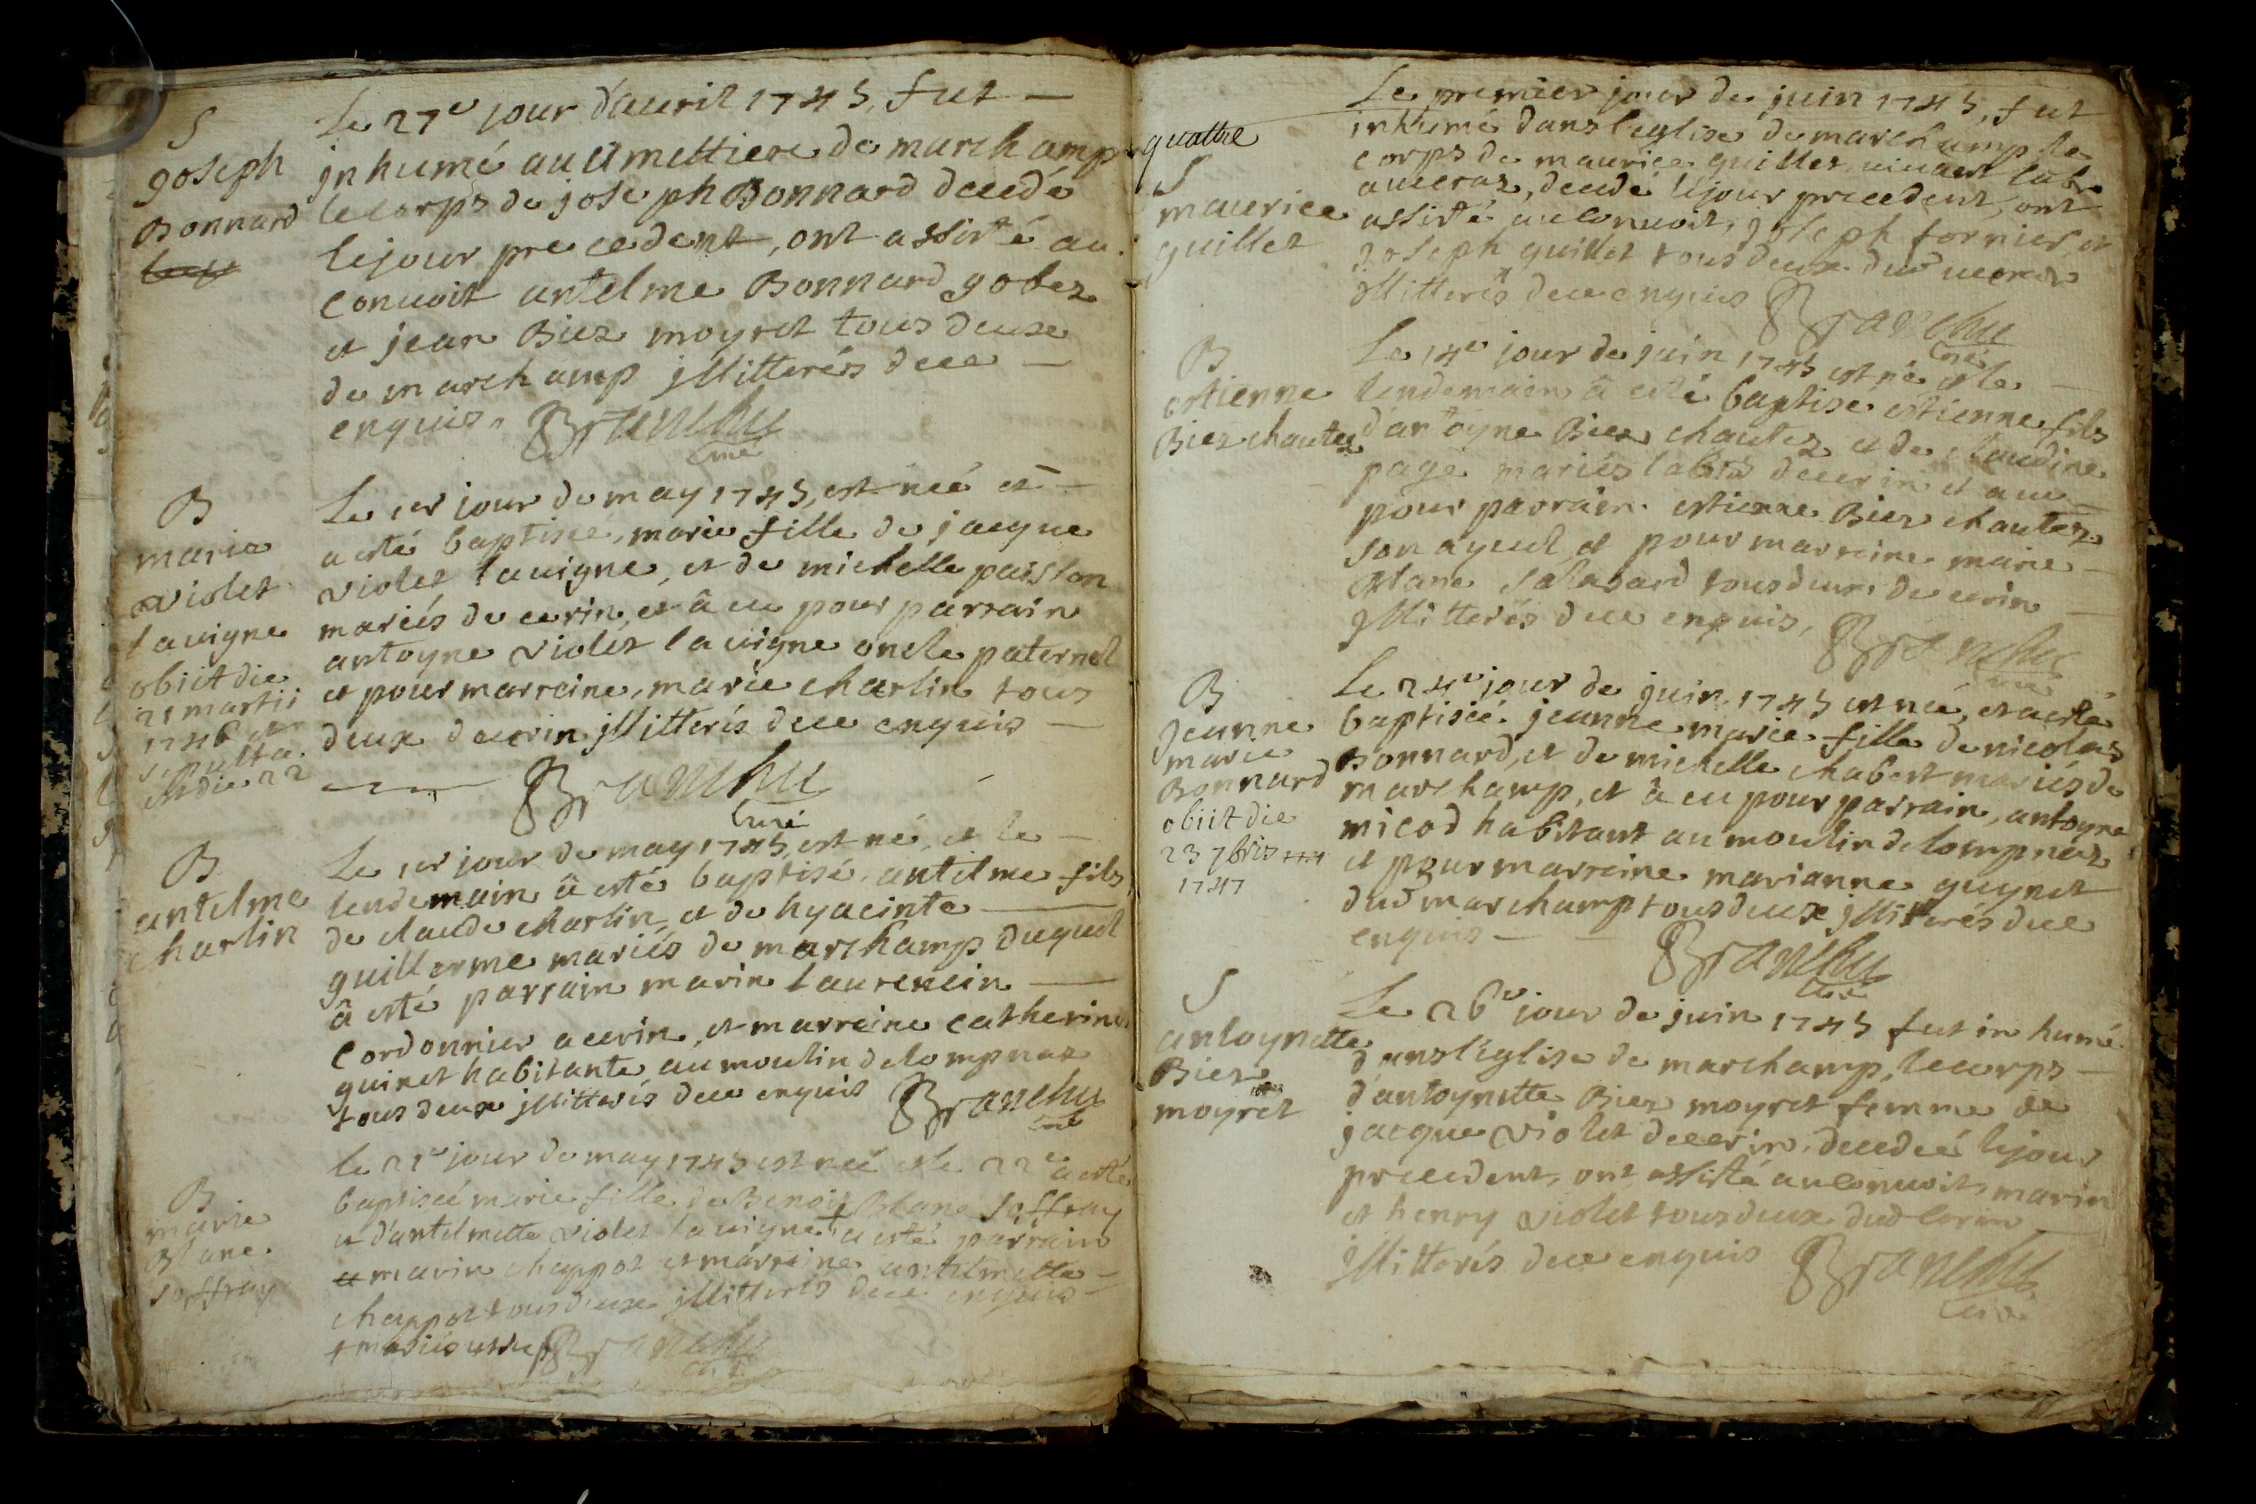 S
joseph
Bonnard
Le 27e jour d'avril 1745, fut
inhumé au cimettiere de marchamp
le corps de joseph Bonnard decedé
le jour precedent, ont assisté au
convoit antelme Bonnard gobez
et jean Biez moyret tous deux
de marchamp illitterés de ce
enquis. Branchu
curé
B
marie
violet
lavigne
obiit die
21 martii
1746 et
sepulta
est die 22
Le 1er jour de may 1745, est neé et
a esté baptiseé, marie fille de jacque
violet lavigne, et de michelle paisson
mariés de cerin, et â eu pour parrain
antoyne violet lavigne oncle paternel
et pour marreine, marie charlin tous
deux de cerin illitterés de ce enquis
Branchu
curé
B
antelme
charlin
Le 1er jour de may 1745 est né, et le
lendemain â esté baptisé, antelme fils
de claude charlin, et de hyacinte
guillerme mariés de marchamp duquel
â esté parrain marin laurencin
cordonnier a cerin, et marreine catherine
guinet habitante au moulin de lompnaz
tous deux illitterés de ce enquis Branchu
curé
B
marie
Blanc
Soffray
le 21e jour de may 1745 est neé et le 22e a esté
baptiseé marie fille de Benoit Blanc Soffray
et d'antelmette violet lavigne + a esté parrain
marin chappot et marreine antelmette
chappot tous deux illitterés de ce enquis
+ mariés Branchu
curé
quattre
S
maurice
guillet
Le premier jour de juin 1745, fut
inhumé dans l'eglise de marchamp le
corps de maurice guillet, vivant labr
decedé le jour precedent, ont
assisté au convoit, joseph fornier, et
joseph guillet tous deux dud
illitterés de ce enquis Branchu
curé
B
estienne
Biez chautez
Le 14e jour de juin 1745 est né et le
lendemain â esté baptise estienne fils
d'antoyne Biez chautez et de claudine
page mariés labrs de cerin et a eu
pour parrain estienne Biez chautez
son ayeul, et pour marreine marie
Blanc tous deux de cerin
illitterés de ce enquis, Branchu
curé
B
jeanne
marie
Bonnard
obiit die
23 7bris
1747
Le 24e jour de juin 1745 est neé, et a esté
baptiseé jeanne marie fille de nicolas
Bonnard, et de michelle chabert mariés de
marchamp, et â eu pour parrain, antoyne
micod habitant au moulin de lompnaz
et pour marreine marianne guynet
dud marchamp tous deux illitterés de ce
enquis Branchu
curé
S
antoynette
Biez
moyret
Le 26e jour de juin 1745 fut inhumé
dans l'eglise de marchamp, le corps
d'antoynette Biez moyret femme de
jacque violet de cerin, decedeé le jour
precedent, ont assisté au convoit, marin
et henry violet tous deux dud cerin
illitterés de ce enquis Branchu
curé